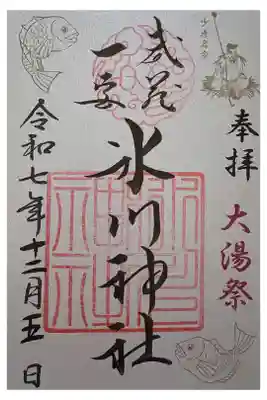 少彦名命
奉拝
大湯祭
武蔵
一宮
氷川神社
令和七年十二月五日